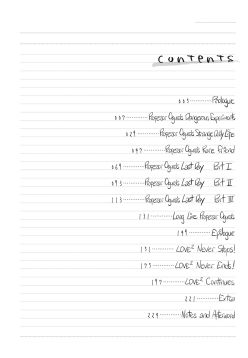 contents
003 Prologue
007 Professor Ogura's Dangerous Experiments
029 Professor Ogura's Strange Daily Life
047 Professor Ogura's Rare Friend
069 Professor Ogura's Last Day Part I
093 Professor Ogura's Last Day Part II
113 Professor Ogura's Last Day Part III
131 Long Live Professor Ogura
149 Epilogue
151 LOVE² Never Stops!
175 LOVE² Never Ends!
197 LOVE² Continues
221 Extra
229 Notes and Afterword